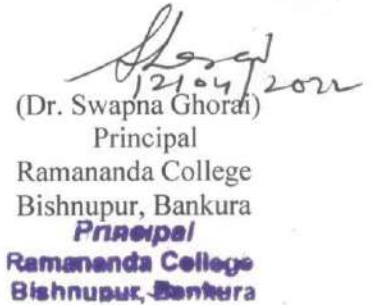 12/04/2022
(Dr. Swapna Ghorai)
Principal
Ramananda College
Bishnupur, Bankura
Principal
Ramananda College
Bishnupur, Bankura